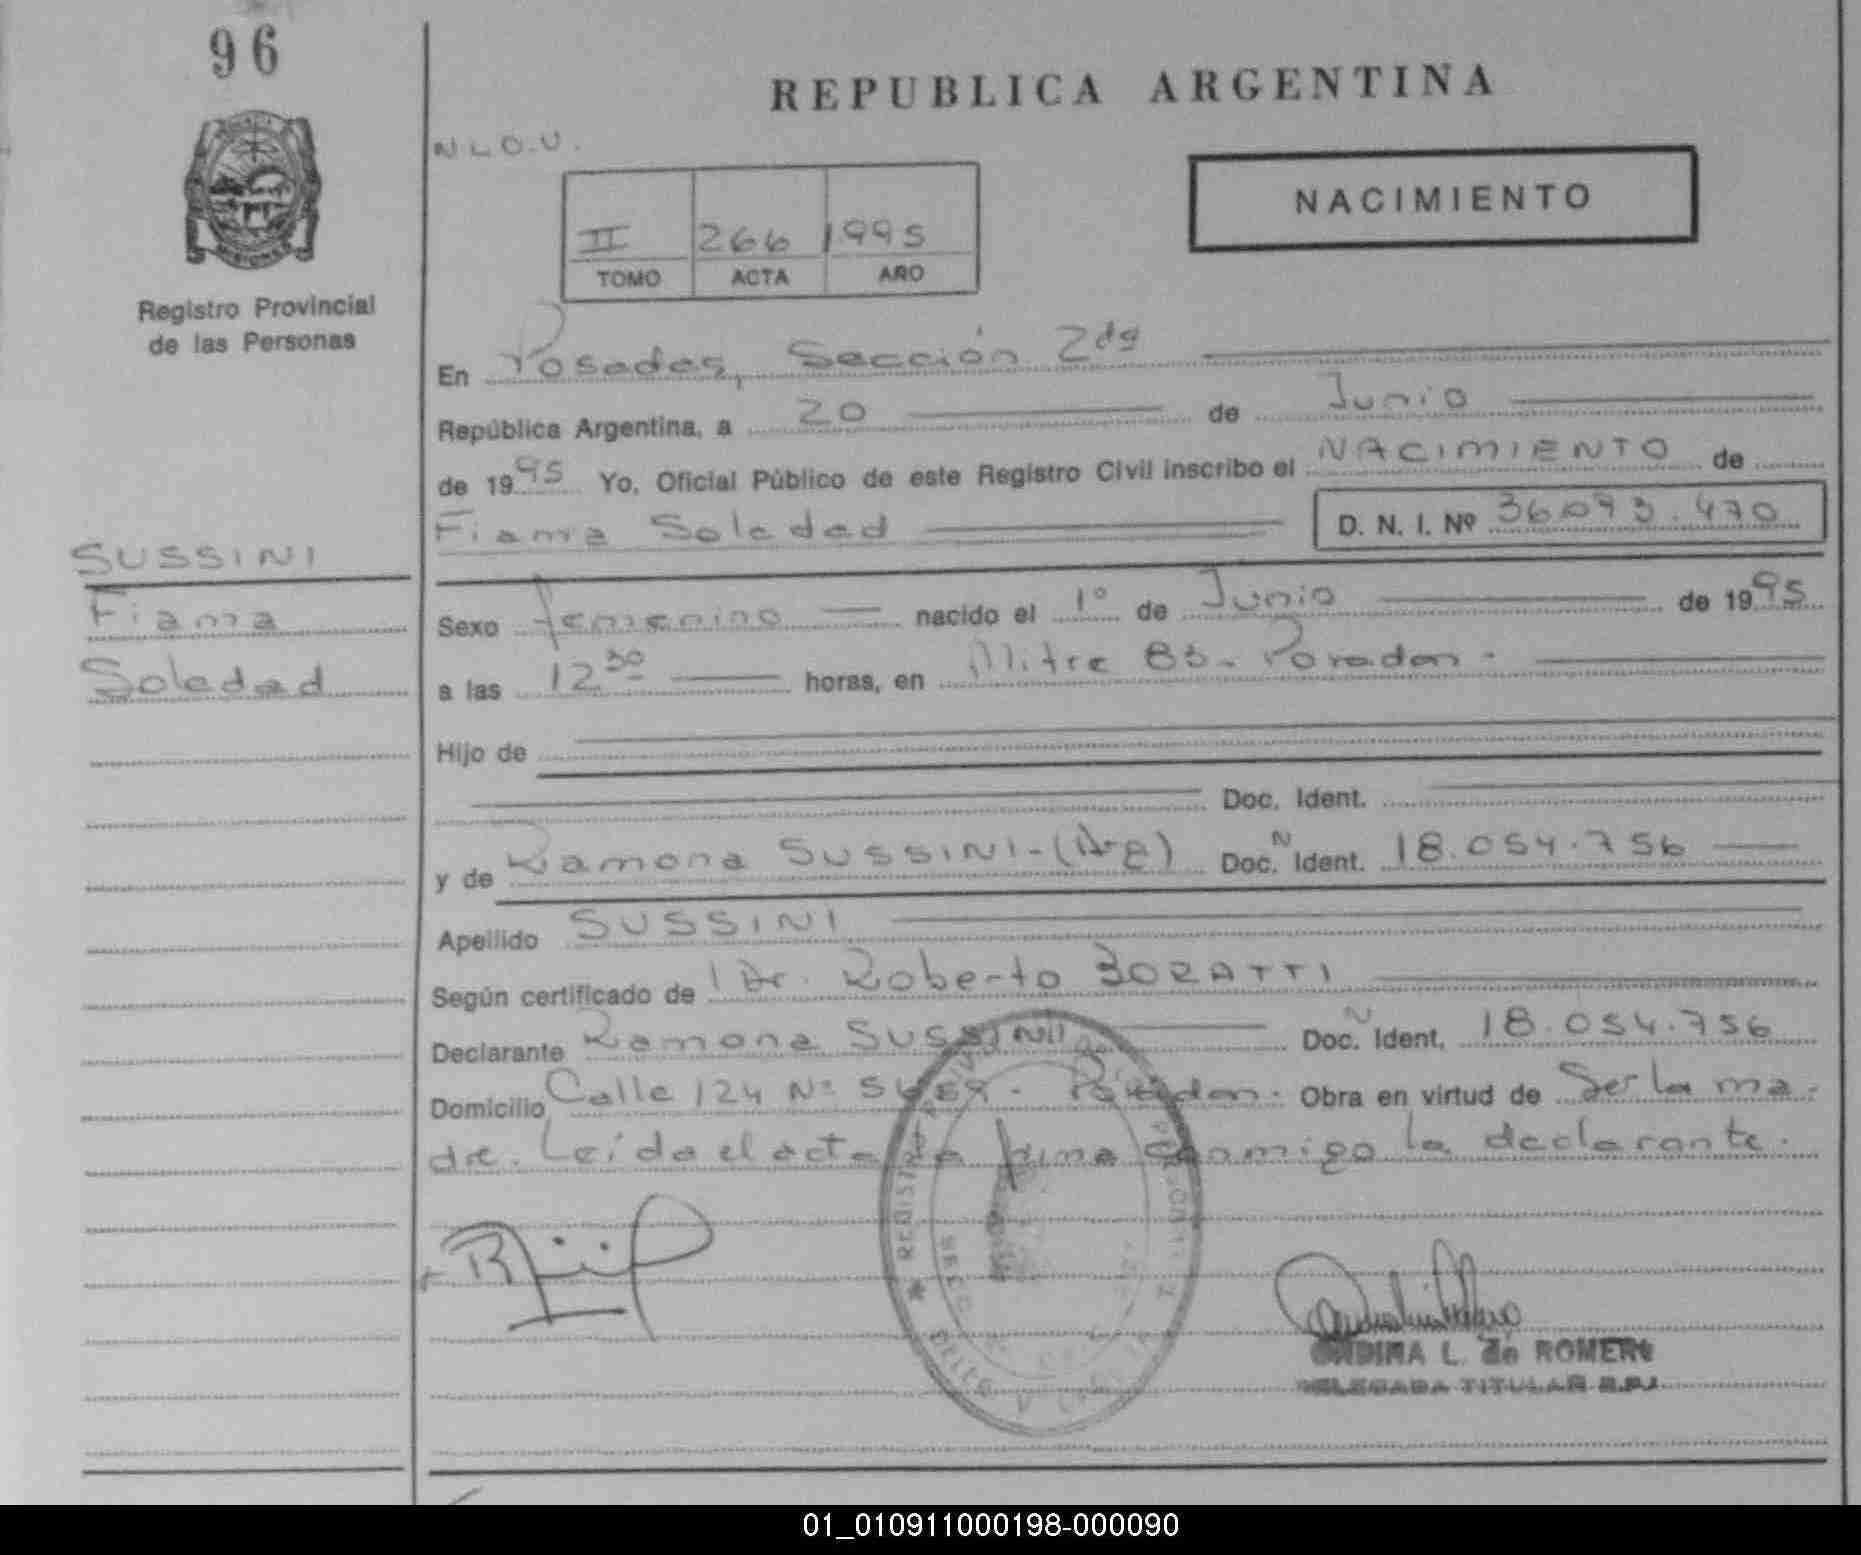 96
REPUBLICA ARGENTINA
N L O . U .
NACIMIENTO
II 266 1995
TOMO ACTA AÑO
Registro Provincial
de las Personas
En Posadas, Sección 2da
República Argentina, a 20 de Junio
de 1995 Yo, Oficial Público de este Registro Civil inscribo el NACIMIENTO de
Fiama Soledad D. N. I. Nº 36.093.470
SUSSINI
Fiama
Soledad
Sexo femenino nacido el 1º de Junio de 1995
a las 12 30 horas, en Mitre 83. Posadas.
Hijo de
Doc. Ident.
y de Ramona SUSSINI-(Arg) Doc. N Ident. 18.054.756
Apellido SUSSINI
Según certificado de Dr. Roberto BORATTI
Declarante Ramona SUSSINI Doc. N Ident. 18.054.756
Domicilio Calle 124 Nº Posadas. Obra en virtud de Ser la ma-
dre. Leída el acta la firma conmigo la declarante.
ONDINA L. de ROMERO
DELEGADA TITULAR R.P.
01_010911000198-000090